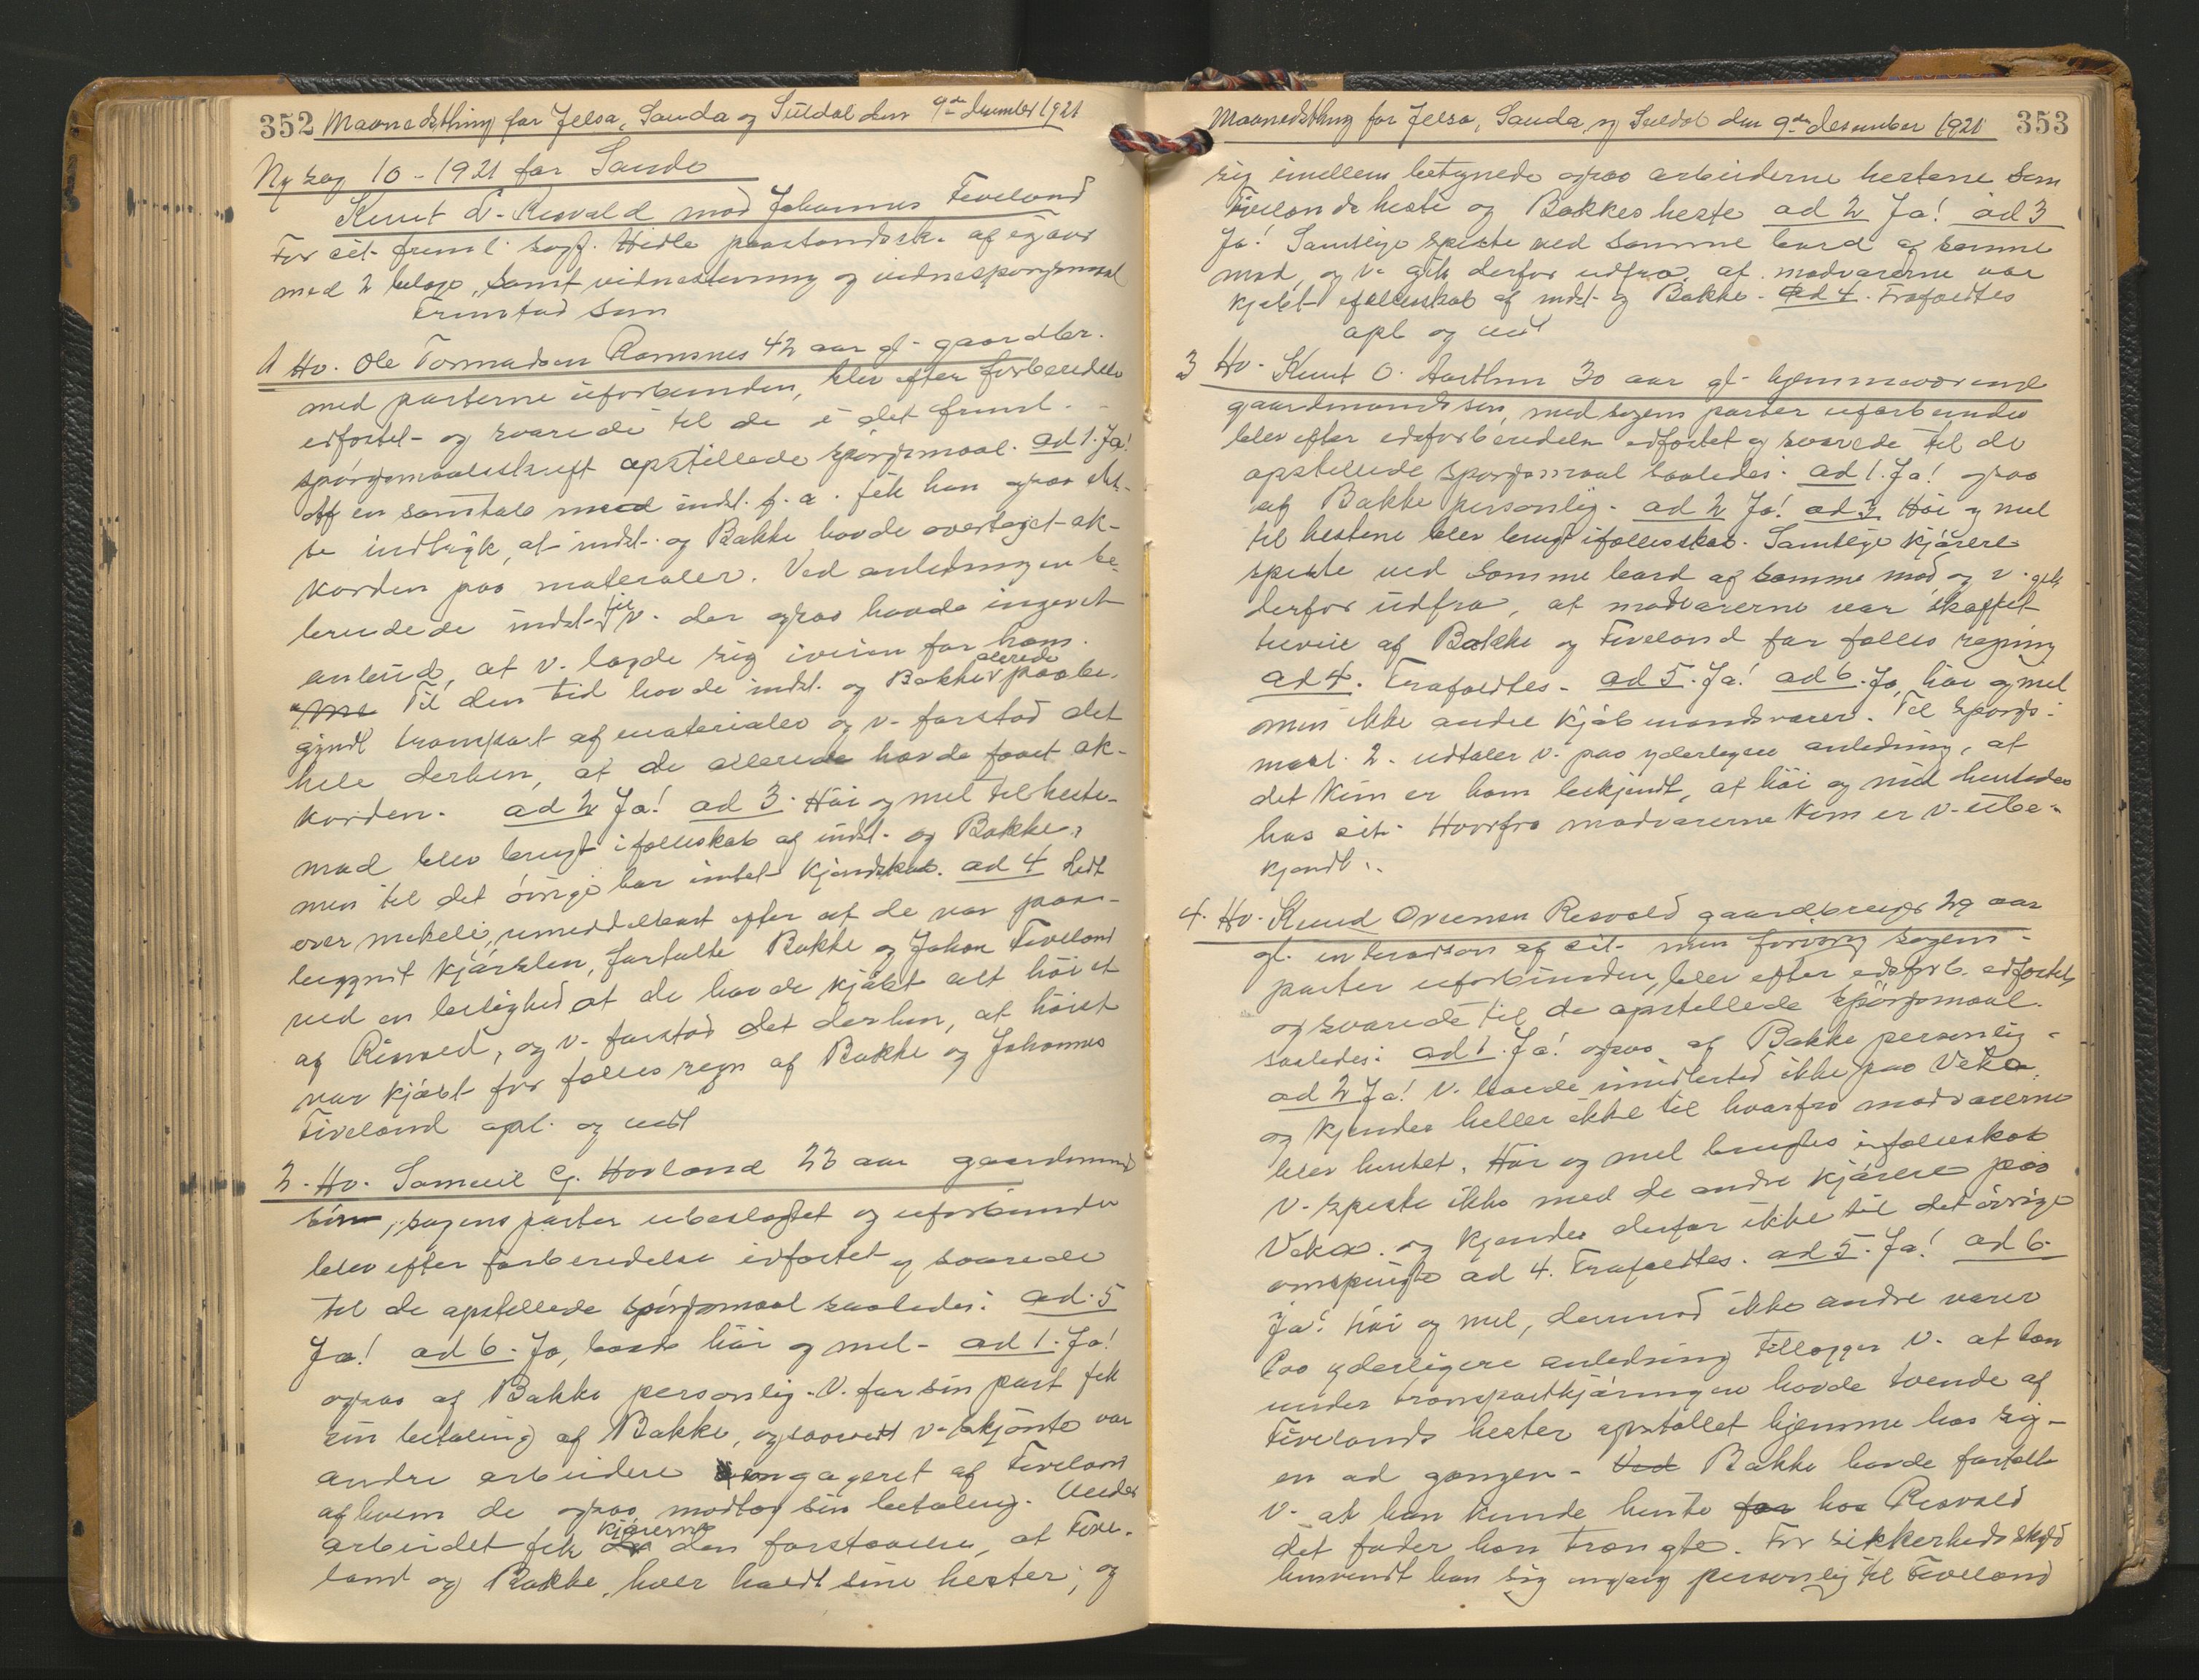 352 Maanedsthing for Jelsa, Sauda og Suldal den 9de desember 1921
Ny sag 10 - 1921 for Sauda
Knut L. Risvald mod Johannes Fiveland
For cit. freml. sagf. Hidle paastandssk. af igaar
med 2 bilage, samt vidnestevning og vidnespørgsmaal
Fremstod som
1 Hv. Ole Tormodsen Ramsnes 42 aar gl. gaardbr.
med parterne uforbunden, blev efter forberedelse
edfæstet og svarede til de i det freml.
spørgsmaalsskrift opstillede spørgsmaal. ad 1. Ja!
Af en samtale med indst. f. a. fik han ogsaa det
be indtryk, at indst. og Bakke havde overtaget ak-
korden paa materialer. Ved anledningen be-
brudede indst. til v. der ogsaa havde ingivet
anbud, at v. lagde sig iveien for ham.
Til den tid havde indst. og Bakke allerede paabe-
gyndt transport af materialer og v. forstod det
hele derhen, at de allerede havde faaet ak-
korden. ad 2 Ja! ad 3. Høi og mel til heste-
mad blev brugt i fælleskab af indst. og Bakke,
men til det øvrige har intet kjendskab. ad 4 Lidt
over mikeli, umiddelbart efter at de var paa-
begyndt kjørslen, fortalte Bakke og Johan Fiveland
ved en leilighed at de havde kjøbt alt høiet
af Risvold, og v. forstod det derhen, at høiet
var kjøbt for fælles regn af Bakke og Johannes
Fiveland opl. og vedt
2. Hv. Samuel G. Hovland 23 aar gaardmands
søn, sagens parter ubeslægtet og uforbunden
blev efter forberedelse edfæstet og svarede
til de opstillede spørgsmaal saaledes: ad. 5
Ja! ad 6. Ja, baade høi og mel - ad 1. Ja!
ogsaa af Bakke personlig. V. for sin part fik
sin betaling af Bakke, og saavidt v. skjønte var
andre arbeidere engageret af Fiveland
af hvem de ogsaa modtog sin betaling. Under
arbeidet fik kjørerne den forstaaelse, at Five-
land og Bakke, hver holdt sine hester, og
Maanedsthing for Jelsa, Sauda og Suldal den 9de desember 1921 353
sig imellem betegnede ogsaa arbeiderne hestene som
Fivelands heste og Bakkes heste ad 2 Ja! ad 3
Ja! Samtlige spiste ved samme bord af samme
mad, og v. gik derfor udfra, at madvarerne var
kjøbt i fælleskab af indst. og Bakke. ad 4. Frafaldtes
opl og vedt
3 Hv. Knut O. Aarthun 30 aar gl. hjemmeværende
gaardmandssøn, med sagens parter uforbunden
blev efter edsforberedelse edfæstet og svarede til de
opstillede spørgsmaal saaledes: ad 1. Ja! ogsaa
af Bakke personlig. ad 2 Ja! ad 3 Høi og mel
til hestene blev brugt ifælleskab. Samtlige kjørere
spiste ved samme bord af samme mad og v. gik
derfor udfra, at madvarerne var skaffet
tilveie af Bakke og Fiveland for fælles regning
ad 4. Frafaldtes. ad 5. Ja! ad 6. Ja, høi og mel
men ikke andre kjøbmandsvarer. Til spørgs-
maal. 2. udtaler v. paa yderligere anledning, at
det kun er ham bekjendt, at høi og mel hentedes
hos cit. Hvorfra madvarerne kom er v. ube-
kjendt.
4. Hv. Knud Ovensen Risvold gaardbruger 29 aar
gl. en brorsøn af cit. men forøvrig sagens
parter uforbunden, blev efter edsforb. edfæstet
og svarede til de opstillede spørgsmaal
saaledes: ad 1. Ja! ogsaa af Bakke personlig
ad 2 Ja! v. boede imidlertid ikke paa Veka
og kjender heller ikke til hvorfra madvarerne
blev hentet. Høi og mel brugtes i fælleskab
V. spiste ikke med de andre kjørere paa
Veka. og kjender derfor ikke til det øvrige
omspurgte ad 4. Frafaldtes. ad 5. Ja! ad 6.
Ja! høi og mel, dermod ikke andre varer
Paa yderligere anledning tillægger v. at han
under transportkjøringen havde tvende af
Fivelands hester opstallet hjemme hos sig -
en ad gangen - Ved Bakke havde fortalt
v. at han kunde hente for hos Risvold
det foder han trængte. For sikkerheds skyld
henvendt han sig engang personlig til Fiveland